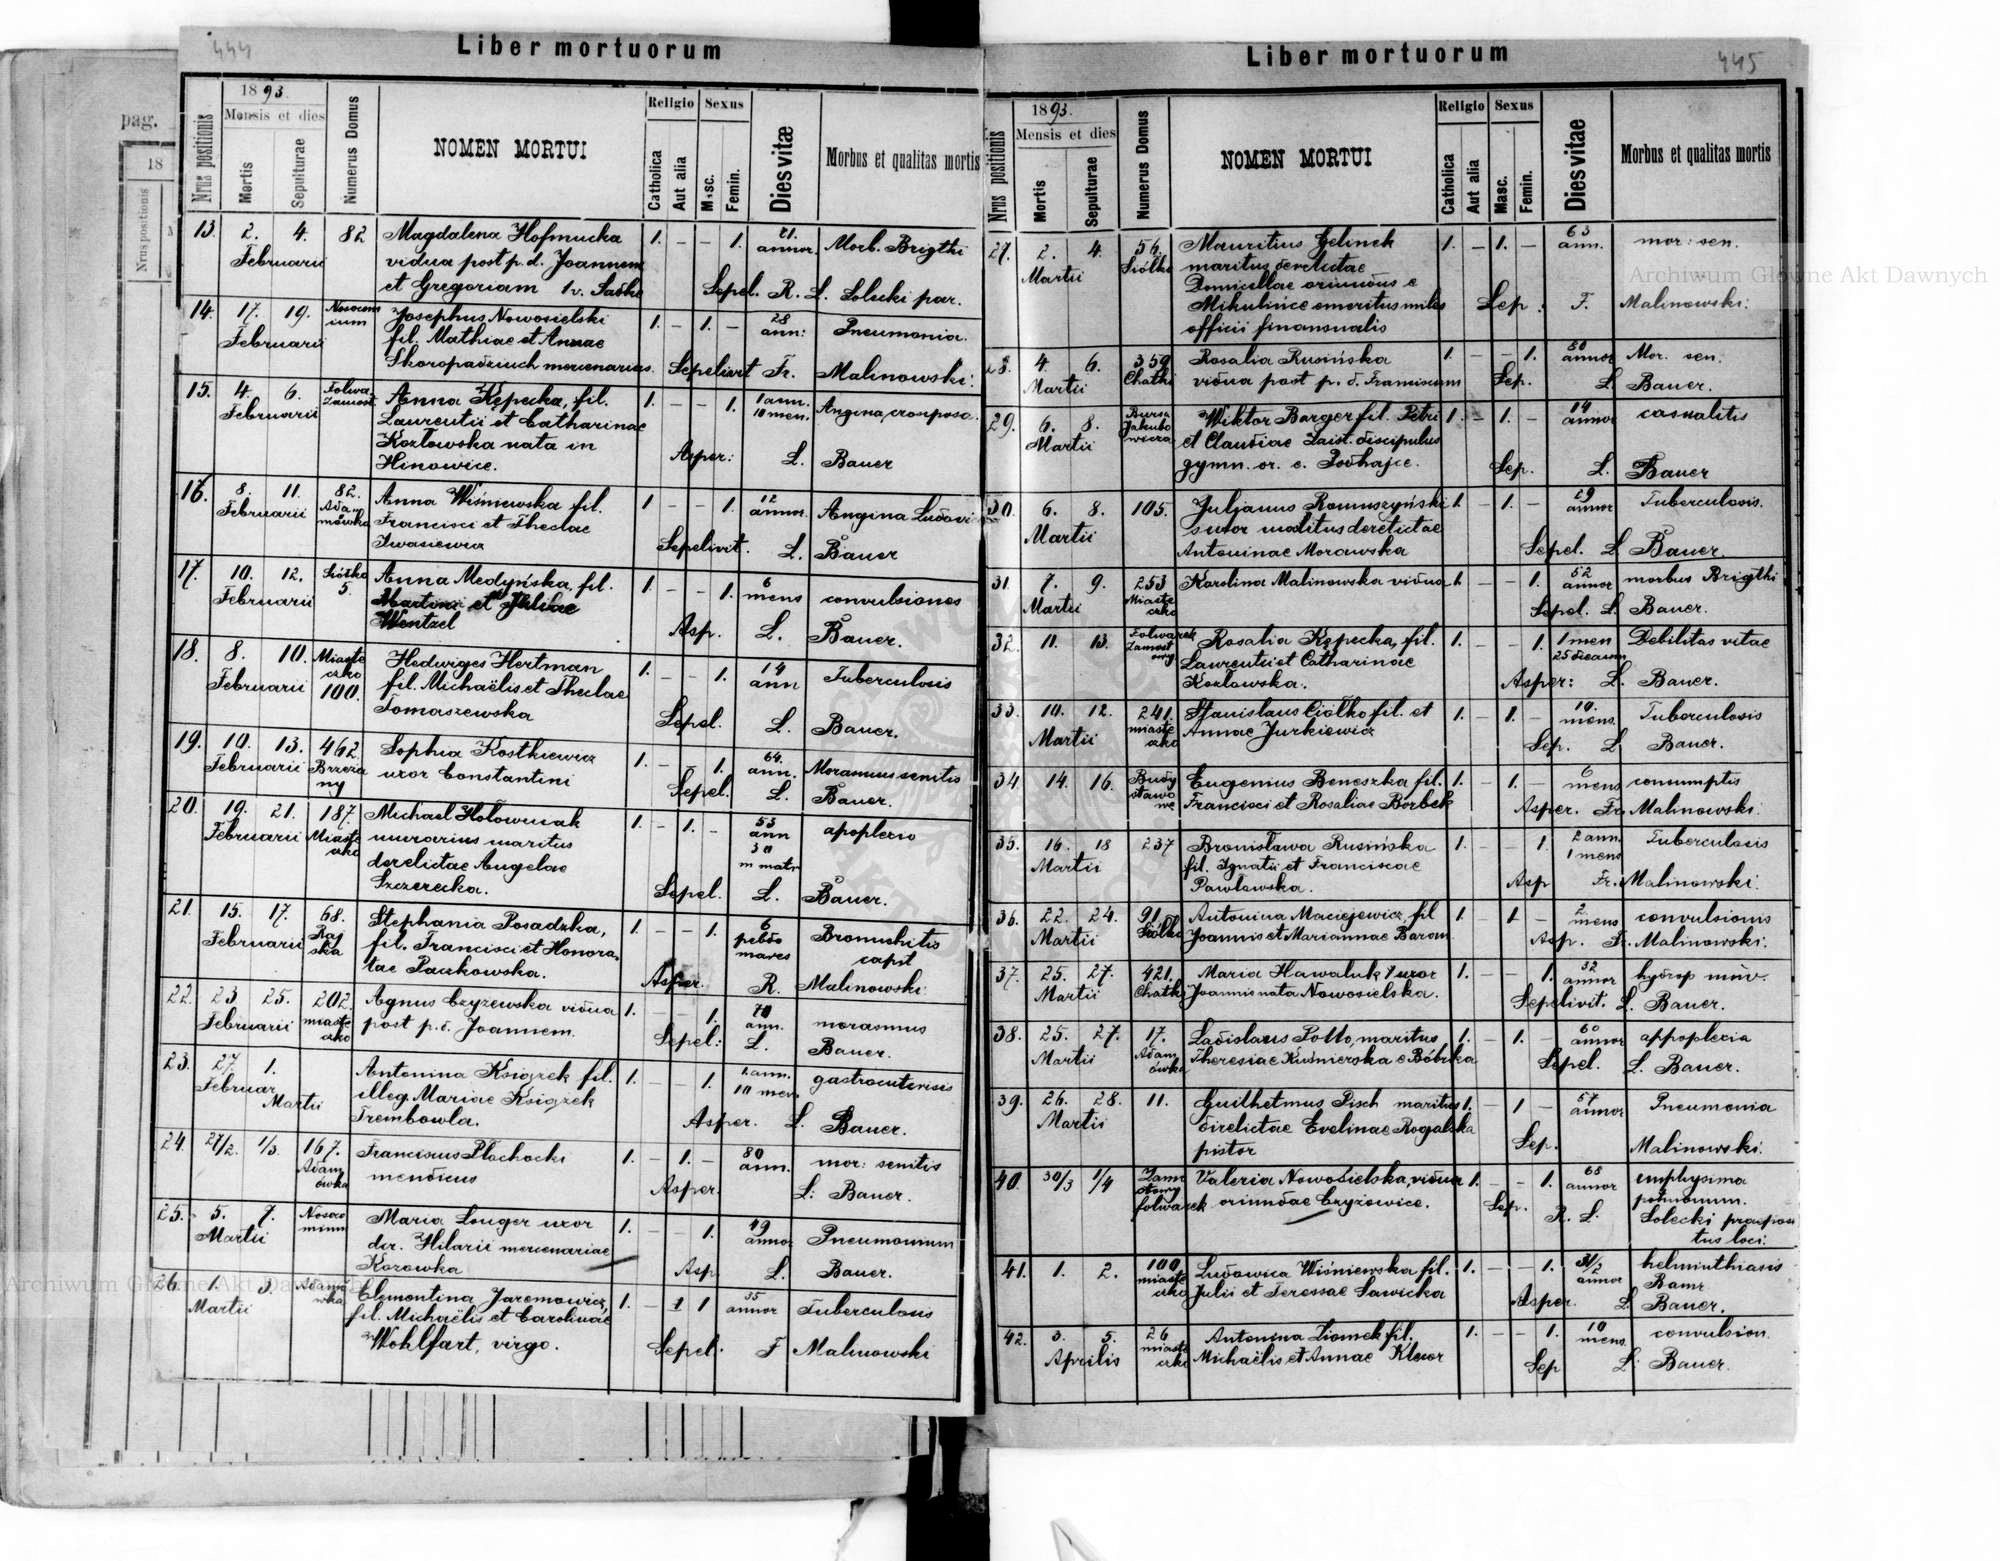 444
Liber mortuorum
pag.
18
Nrus positionis
Nrus positionis
1893.
Mensis et dies
Mortis
Sepulturae
Numerus Domus
NOMEN MORTUI
Religio
Catholica
Aut alia
Sexus
Masc.
Femin.
Dies vitæ
Morbus et qualitas mortis
13. 2. 4. 82 Magdalena Hofmucka 1. - - 1. 71. Morb. Brigthi
Februarii vidua post p. d. Joannem annor.
et Gregoriam 1v. Sepel. R. L. Solecki par.
14. 17. 19. Josephus Nowosielski 1. - 1. - 28 Pneumonia.
Februarii fil. Mathiae et Annae ann:
Skoropadziuch mercenarius. Sepelivit Fr. Malinowski.
15. 4. 6. Folwa Anna Kępecka, fil. 1. - - 1. 1 ann. Angina crouposa.
Februarii Zamost Laurentii et Catharinae 10 men.
Kozłowska nata in Asper: L. Bauer
Hinowice.
16. 8. 11. 82. Anna Wiśniewska fil. 1 - - 1. 12 Angina Ludovi
Februarii Adam Francisci et Theclae annor.
mówka Iwasiewicz Sepelivit. L. Bauer
17. 10. 12. Siółko Anna Medyńska, fil. 1. - - 1. 6 convulsiones
Februarii 5. Martini et Juliae mens
Wentzel Asp. L. Bauer.
18. 8. 10. Miaste Hedwiges Hertman 1. - - 1. 14 Tuberculosis
Februarii czko fil. Michaëlis et Theclae ann
100. Tomaszewska Sepel. L. Bauer.
19. 10. 13. 462 Sophia Kostkiewicz 1. - - 1. 64. Morasmus senilis
Februarii Brzeza uxor Constantini ann.
ny Sepel. L. Bauer.
20. 19. 21. 187. Michael Hołowczak 1. - 1. - 53 apoplexio
Februarii Miaste murarius maritus ann
czko derelictae Angelae 30
Szczerecka. Sepel. L. Bauer.
21. 15. 17. 68. Stephania Posadzka, 1. - - 1. 6 Bronchitis
Februarii Raj fil. Francisci et Honora, capil
ska tae Paczkowska. Asper. R. Malinowski
22. 23 25. 202. Agnus Czyżewska vidua 1. - - 1. 70 morasmus
Februarii miaste post p. d. Joannem. ann.
czko Sepel: L. Bauer.
23. 27. 1. Antonina Książek fil. 1. 1. 1 ann. gastroenterisis
Februar illeg. Mariae Książek 10 men.
Martii Trembowla. Asper. L. Bauer.
24. 27/2. 1/3. 167. Franciscus Płachocki 1. - 1. - 80 mor: senilis
Adam mendicus ann.
ówka Asper. L: Bauer.
25. 5. 7. Nosoco Maria Longer uxor 1. - - 1. 49 Pneumonium
Martii mium der. Hilarii mercenariae annor
Kozowka Asp L. Bauer.
26. 1. 3. Adamó Clementina Jaremowicz, 1. - 1 1 35 Tuberculosis
Martii wka fil. Michaëlis et Carolinae annor
Wohlfart, virgo. Sepel. F Malinowski
445
Liber mortuorum
Nrus positionis
1893.
Mensis et dies
Mortis
Sepulturae
Numerus Domus
NOMEN MORTUI
Religio
Catholica
Aut alia
Sexus
Masc.
Femin.
Dies vitae
Morbus et qualitas mortis
27. 2. 4. 56. Mauritius Gelinek 1. - 1. - 63 mor: sen.
Martii Siółko maritus derelictae ann.
Domicellae oriundus e
Mikulińce emeritus miles Sep: F. Malinowski.
officii finansualis
28. 4. 6. 359 Rosalia Rusińska 1. - - 1. 80 Mor. sen.
Martii Chatki vidua post p. d. Franciscum Sep. annor L. Bauer.
29. 6. 8. Bursa Wiktor Barger fil. Petri 1. - 1. - 14 casualitis
Martii Jakubo et Claudiae Zaist. discipulus annor
wicza gymn. or. e. Podhajce. Sep. L. Bauer
30. 6. 8. 105. Juljanus Romuszyński 1. - 1. - 29 Tuberculosis.
Martii sutor maritus derelictae annor
Antoninae Morawska Sepel. L Bauer.
31. 7. 9. 253 Karolina Malinowska vidua 1. - - 1. 52 morbus Brigthi
Martii Miaste annor
czko Sepel. L. Bauer.
32. 11. 13. Folwarek Rosalia Kępecka, fil. 1. - - 1. 1 men Debilitas vitae
Zamost Laurentii et Catharinae 25 dierum
owy Kozłowska. Asper: L. Bauer.
33. 10. 12. 241. Stanislaus Ciółko fil. et 1. - 1. - 10. Tuberculosis
Martii miaste Annae Jurkiewicz mens
czko Sep. L Bauer.
34 14. 16. Budy Eugenius Beneszka fil. 1. - 1. - 6 consumptis
stawo Francisci et Rosaliae Borbek mens
we Asper. Fr. Malinowski.
35. 16. 18 237 Bronisława Rusińska 1. - - 1. 2 ann. Tuberculosis
Martii fil. Ignatii et Franciscae 1 mens
Pawłowska. Asp Fr. Malinowski.
36. 22. 24. 91. Antonina Maciejewicz, fil 1. - 1 - 2 convulsionis
Martii Siółko Joannis et Mariannae Baran mens
Asp. Fr. Malinowski.
37. 25. 27. 421. Maria Hawaluk uxor 1. - - 1. 32 hydrop
Martii Chatki Joannis nata Nowosielska. annor
Sepelivit. L. Bauer.
38. 25. 27. 17. Ladislaus Polto, maritus 1. - 1. - 60 appoplexia
Martii Adam Theresiae Kuśnierska e Bóbrka annor
ówka Sepel. L. Bauer.
39. 26. 28. 11. Guilhelmus Pisch maritus 1. - 1 - 57 Pneumonia
Martii direlictae Evelinae Rogalska annor
pistor Sep. Malinowski.
40. 30/3 1/4 Zam Valeria Nowosielska, vidua 1. - - 1. 68 emphysima
ostowy oriundae Czyżowice. annor pulmonum.
folwarek Sep. R. L. Solecki praeposi
tus loci.
41. 1. 2. 100 Ludowica Wiśniewska fil. 1. - - 1. 3 1/2 helminthiasis
miaste Julii et Teressae Sawicka annor
czko Asper. L Bauer.
42. 3. 5. 26 Antonina Ziomek fil. 1. - - 1. 10 convulsion.
Aprilis miaste Michaëlis et Annae mens
czko Sep L. Bauer.
Archiwum Główne Akt Dawnych
Archiwum Główne Akt Dawnych